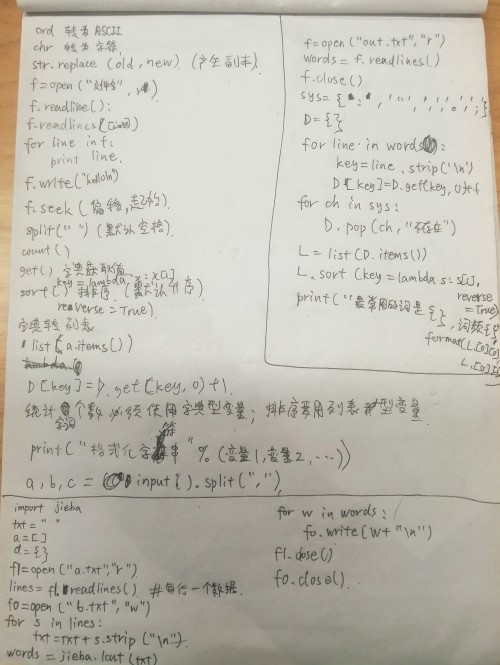 ord 转为 ASCII
chr 转为 字符
str.replace (old, new) (产生副本)
f=open("文件名", r)
f.readline():
f.readlines()
for line in f:
print line.
f.write("hello\n")
f.seek (偏移, 起始)
split(" ") (默认空格)
count()
get() 字典取值
key=lambda x:x[1]
sort() 排序 (默认升序)
reverse=True)
字典转列表
list(a.items())
D[key]=D.get(key,0)+1
统计个数必须使用字典型变量; 排序常用列表型变量
字词
print("格式化字符串" %(变量1,变量2,…))
a,b,c = input().split(",")
f=open("out.txt","r")
words=f.readlines()
f.close()
sys={
D={}
for line in words:
key=line.strip('\n')
D[key]=D.get(key,0)+1
for ch in sys:
D.pop(ch,"不存在")
L=list(D.items())
L.sort(key=lambda s:s[1],
reverse
=True)
print("最常用的词是{},词频{}"
format(L[0][0],
L[0][1]
import jieba
txt=" "
a=[]
d={}
f1=open("a.txt","r")
lines=f1.readlines() #每行一个数据
fo=open("b.txt","w")
for s in lines:
txt=txt+s.strip("\n")
words=jieba.lcut(txt)
for w in words:
fo.write(w+"\n")
f1.close()
fo.close()